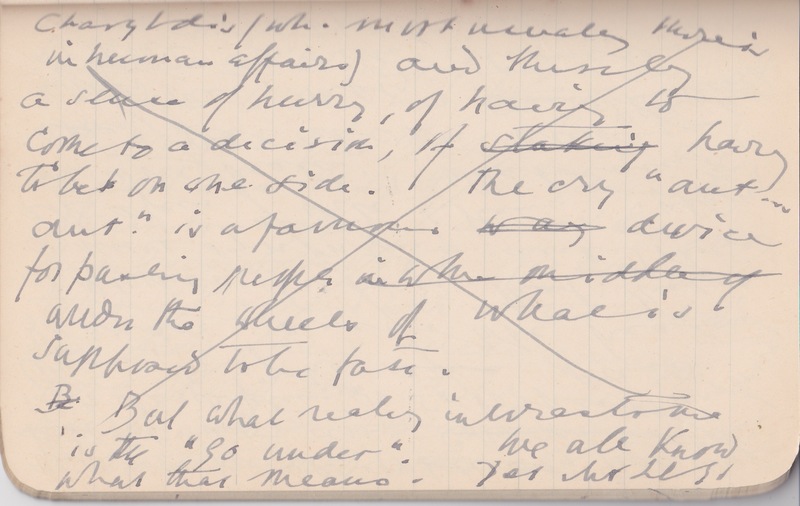 Charybdis (wh. most usually there is
in human affairs) and thereby
a sense of hurry, of having to
come to a decision, of staking having
to bet on one side. The cry "aut...
aut." is a famous way device
for pushing people in the middle of
under the wheels of what is
supposed to be fate.
B But what really interests me
is the "go under". We all know
what that means.